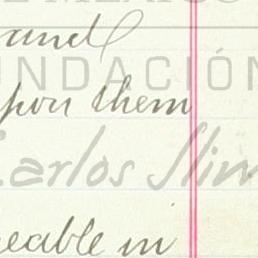 and
FUNDACIÓN
upon them
Carlos Slim
eable in